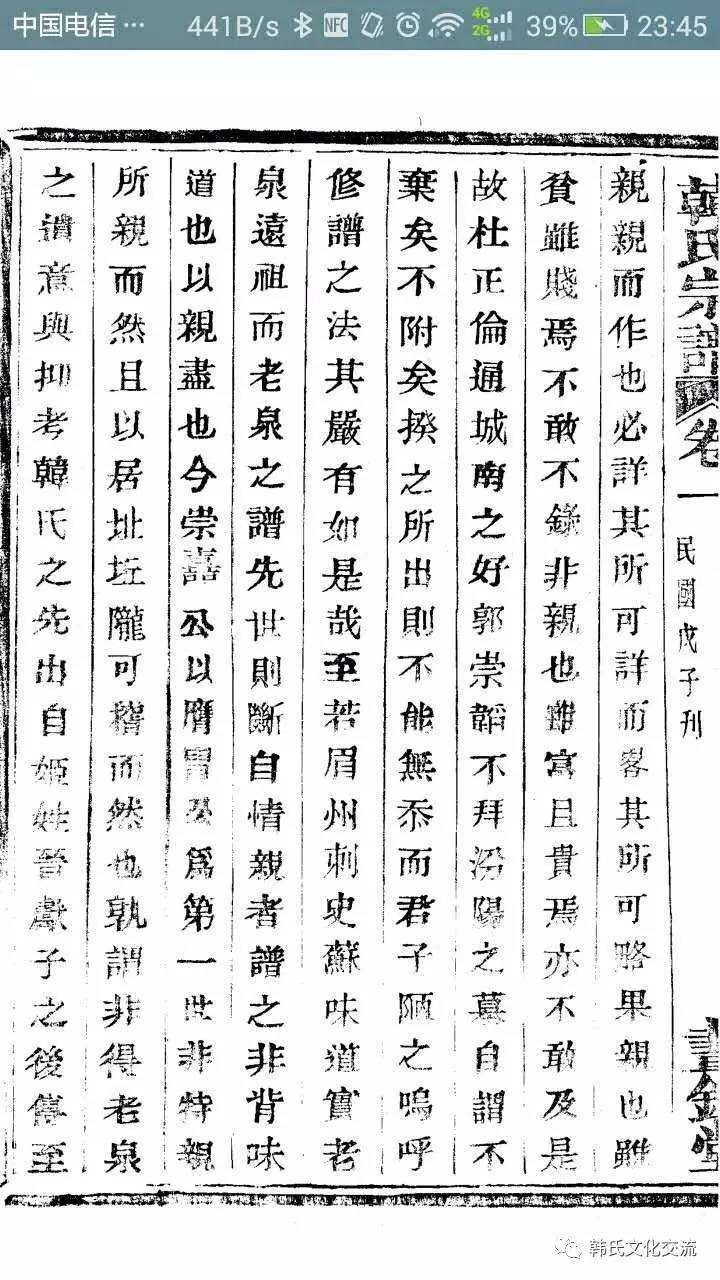 中国电信 ··· 441B/s NFC 4G 2G 39% 23:45
韓氏宗譜 卷一 民國戊子刊 晝錦堂
親親而作也必詳其所可詳而畧其所可略果親也雖
貧雖賤焉不敢不錄非親也雖富且貴焉亦不敢及是
故杜正倫通城南之好郭崇韜不拜汾陽之墓自謂不
棄矣不附矣揆之所出則不能無忝而君子陋之嗚呼
修譜之法其嚴有如是哉至若眉州刺史蘇味道實老
泉遠祖而老泉之譜先世則斷自情親者譜之非背味
道也以親盡也今崇譆公以膺冐公爲第一世非特親
所親而然且以居址坵隴可稽而然也孰謂非得老泉
之遺意與抑考韓氏之先出自姬姓晉獻子之後傳至
韩氏文化交流